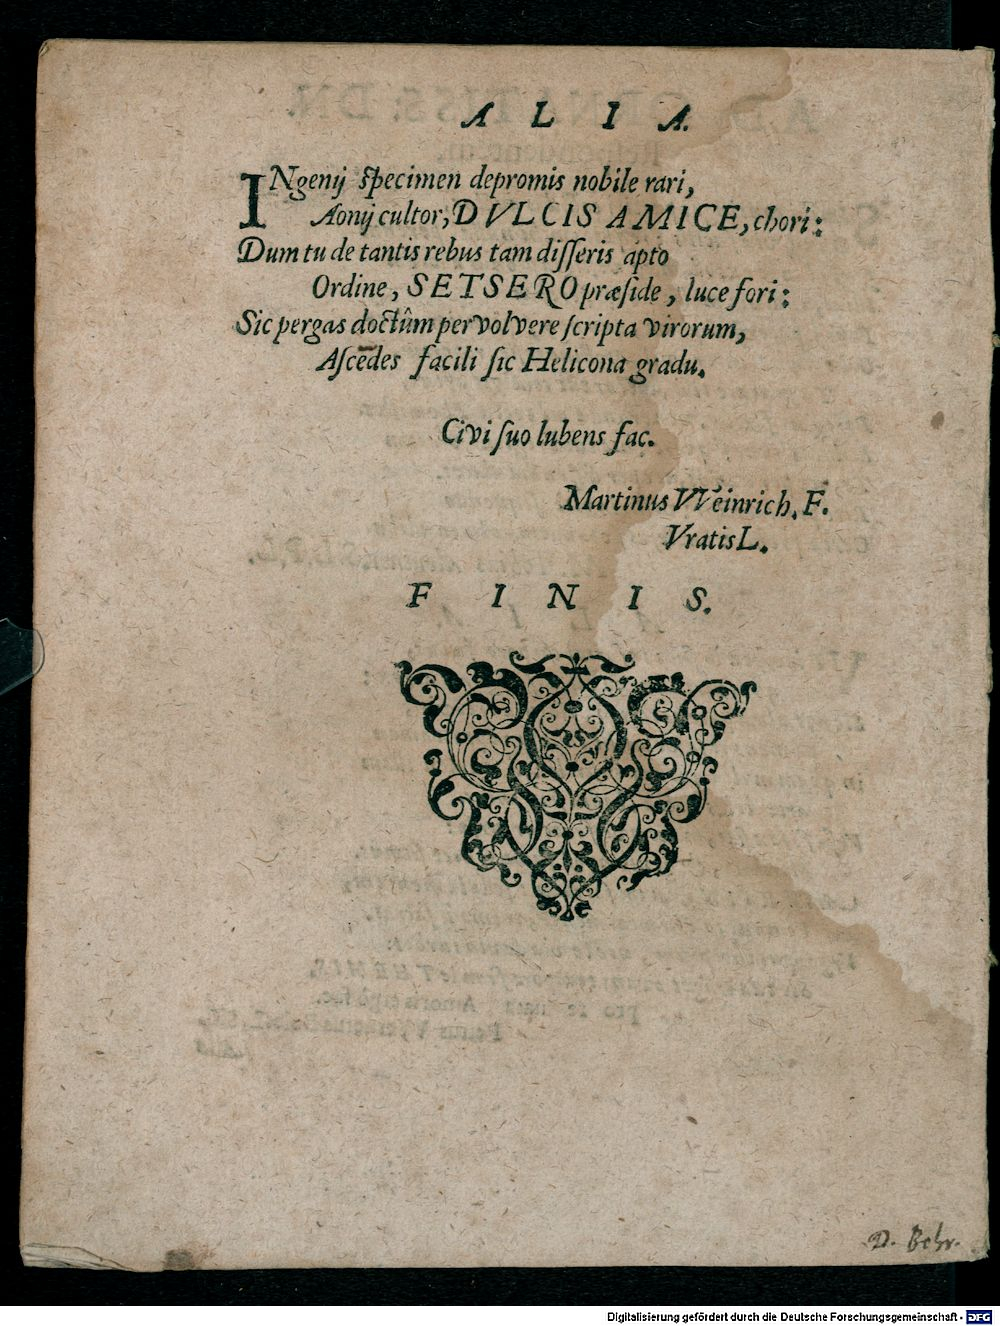 A L I A.
INgenij specimen depromis nobile rari,
Aonij cultor, DVLCIS AMICE, chori:
Dum tu de tantis rebus tam disseris apto
Ordine, SETSERO præside, luce fori:
Sic pergas doctûm pervolvere scripta virorum,
Ascēdes facili sic Helicona gradu.
Civi suo lubens fac.
Martinus VVeinrich. F.
VratisL.
F I N I S.
D. Behr.
Digitalisierung gefördert durch die Deutsche Forschungsgemeinschaft - DFG